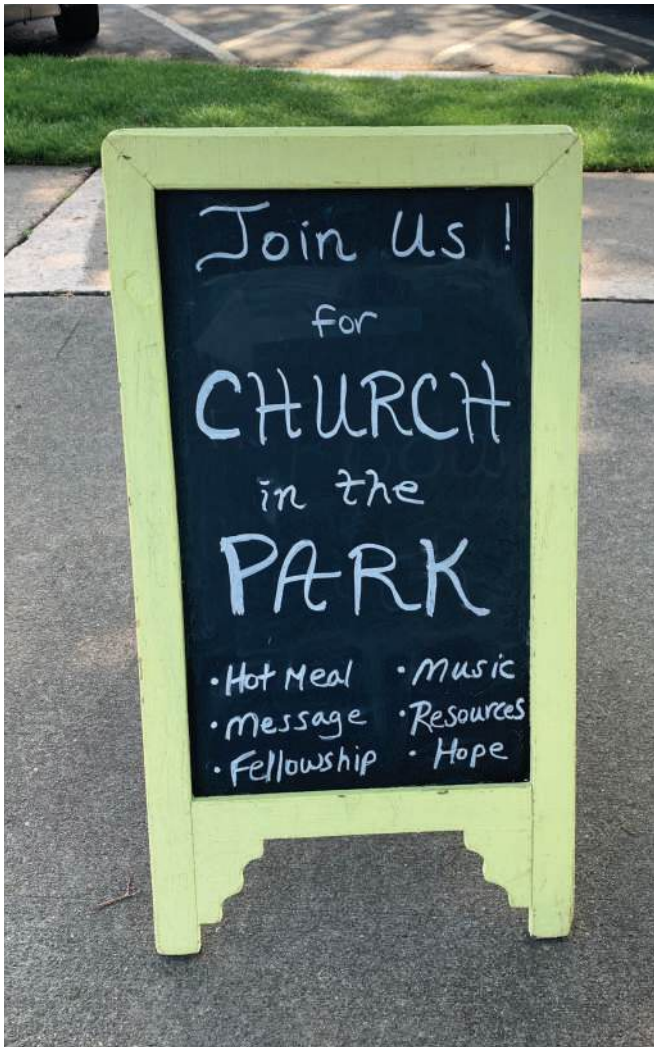 Join Us !
for
CHURCH
in the
PARK
• Hot Meal
• Message
• Fellowship
• Music
• Resources
• Hope